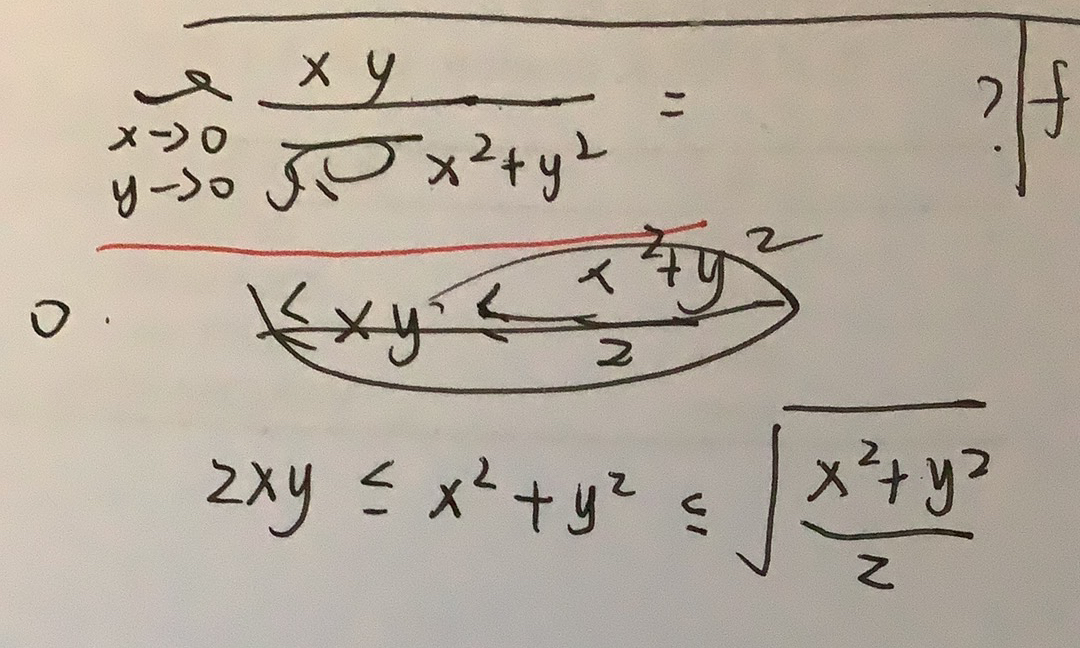 lim x→0 y→0 xy / x²+y² = ? f
0. ≤ xy ≤ x²+y² / 2
2xy ≤ x²+y² ≤ √(x²+y² / 2)